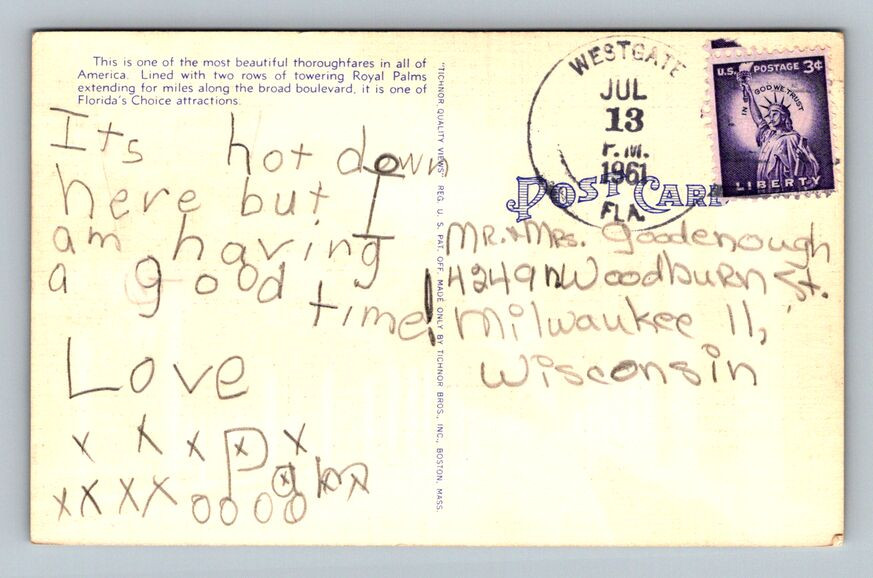 This is one of the most beautiful thoroughfares in all of
America. Lined with two rows of towering Royal Palms
extending for miles along the broad boulevard, it is one of
Florida's Choice attractions.
Its hot down
here but I
am having
a good
time!
Love
x x x P x
x x x x o o o o x x
"TICHNOR QUALITY VIEWS" REG. U. S. PAT. OFF. MADE ONLY BY TICHNOR BROS., INC., BOSTON, MASS.
WESTGATE
JUL
13
P.M.
1961
FLA.
U.S. POSTAGE 3¢
IN GOD WE TRUST
LIBERTY
POST CARD
MR. & MRS. Goodenough
4249 N Woodburn St.
Milwaukee 11,
Wisconsin